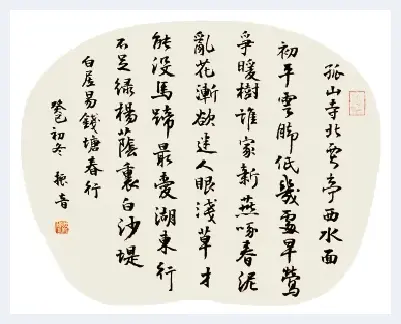 孤山寺北賈亭西水面
初平雲脚低幾處早鶯
爭暖樹誰家新燕啄春泥
亂花漸欲迷人眼淺草才
能没馬蹄最愛湖東行
不足绿楊蔭裏白沙堤
白居易錢塘春行
癸巳初冬 振音